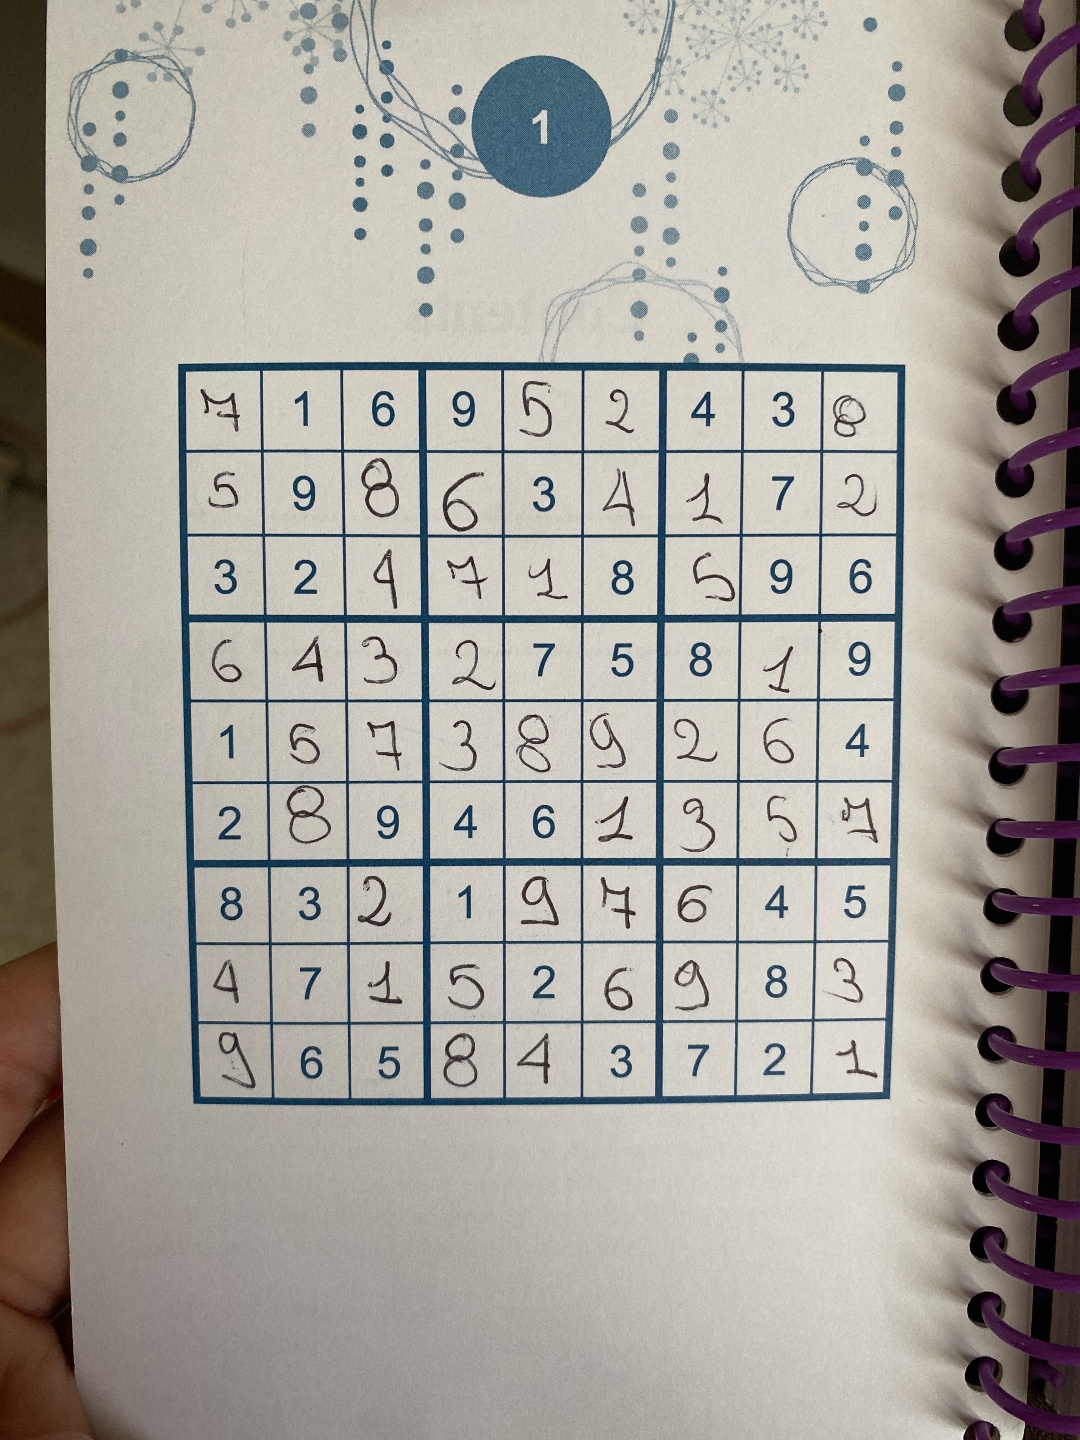 1
7 1 6 9 5 2 4 3 8
5 9 8 6 3 4 1 7 2
3 2 4 7 1 8 5 9 6
6 4 3 2 7 5 8 1 9
1 5 7 3 8 9 2 6 4
2 8 9 4 6 1 3 5 7
8 3 2 1 9 7 6 4 5
4 7 1 5 2 6 9 8 3
9 6 5 8 4 3 7 2 1